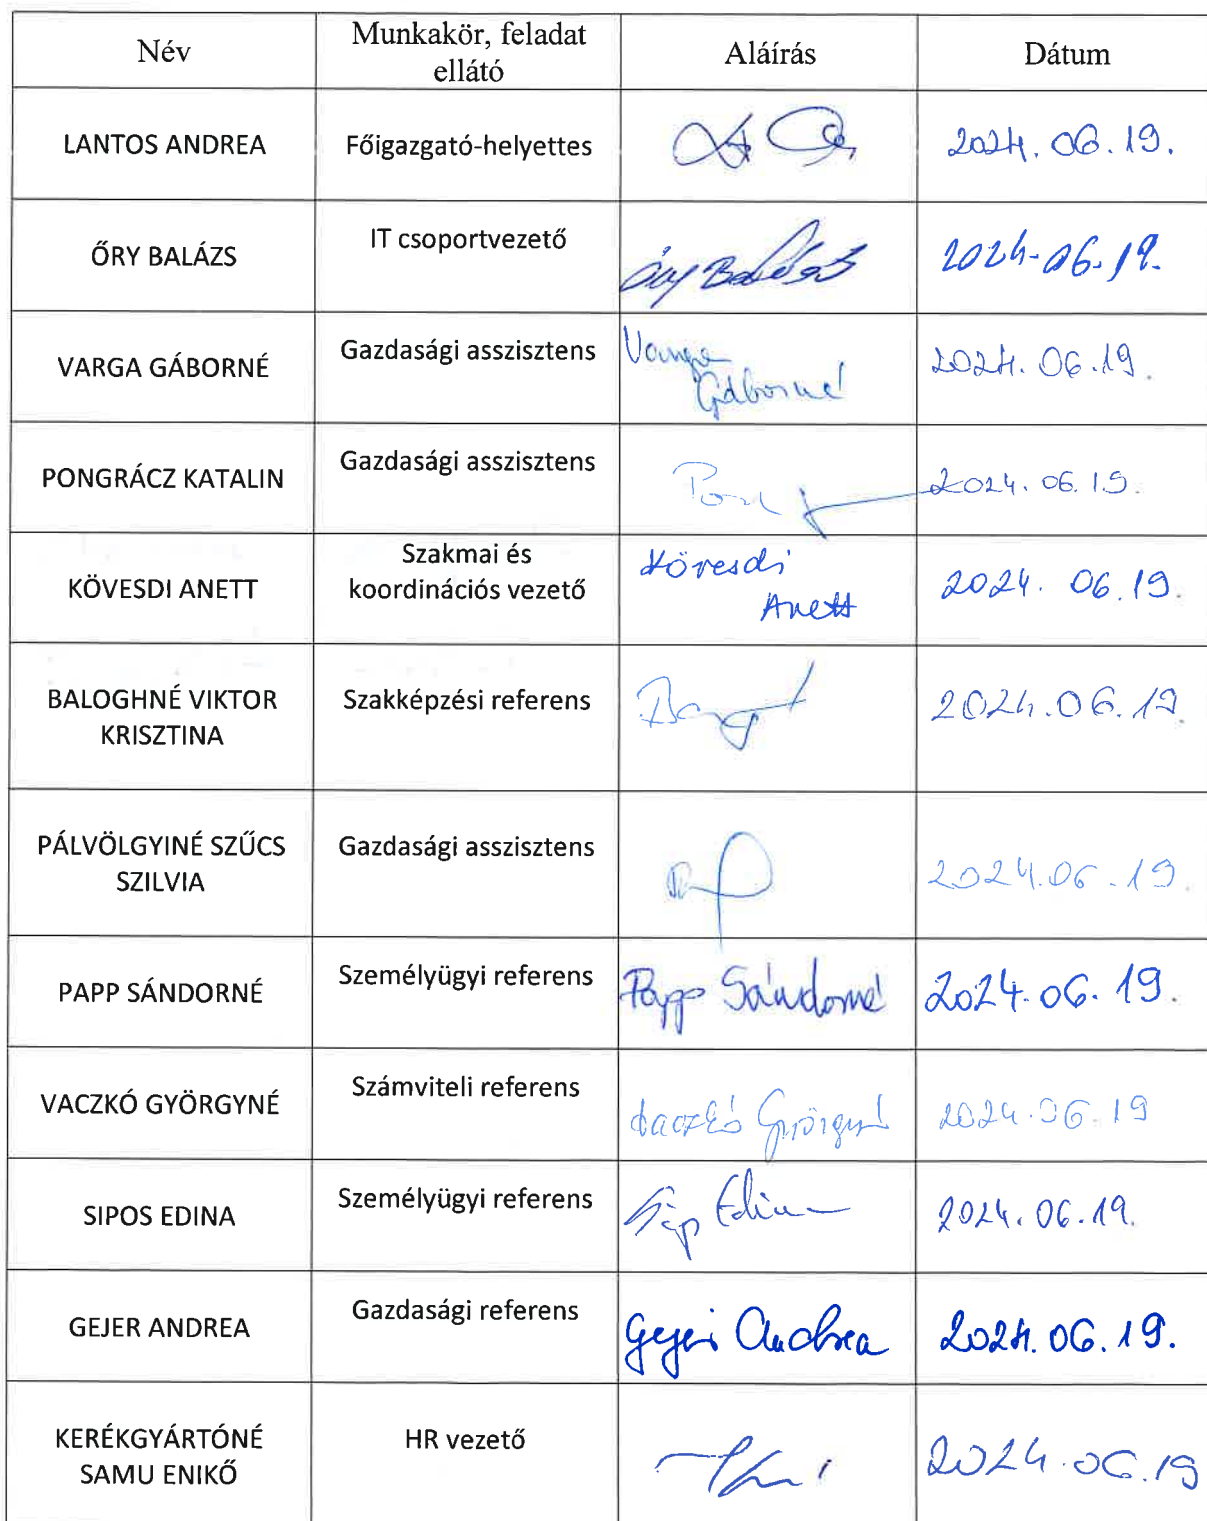 Név Munkakör, feladat ellátó Aláírás Dátum
LANTOS ANDREA Főigazgató-helyettes 2024. 06. 19.
ŐRY BALÁZS IT csoportvezető Őry Balázs 2024-06-19.
VARGA GÁBORNÉ Gazdasági asszisztens Varga Gáborné 2024. 06.19.
PONGRÁCZ KATALIN Gazdasági asszisztens 2024. 06. 19.
KÖVESDI ANETT Szakmai és koordinációs vezető Kövesdi Anett 2024. 06.19.
BALOGHNÉ VIKTOR KRISZTINA Szakképzési referens 2024.06.19.
PÁLVÖLGYINÉ SZŰCS SZILVIA Gazdasági asszisztens 2024.06.19.
PAPP SÁNDORNÉ Személyügyi referens Papp Sándorné 2024.06.19.
VACZKÓ GYÖRGYNÉ Számviteli referens Vaczkó Györgyné 2024.06.19
SIPOS EDINA Személyügyi referens Sip Edina 2024.06.19.
GEJER ANDREA Gazdasági referens Gejer Andrea 2024.06.19.
KERÉKGYÁRTÓNÉ SAMU ENIKŐ HR vezető 2024.06.19